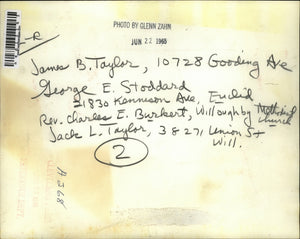 PHOTO BY GLENN ZAHN
JUN 22 1965
James B. Taylor, 10728 Gooding Ave
George E. Stoddard
21830 Kennison Ave, Euclid
Rev. Charles E. Burkert, Willoughby Methodist Church
Jack L. Taylor, 38271 Union St
Will.
2
A 368